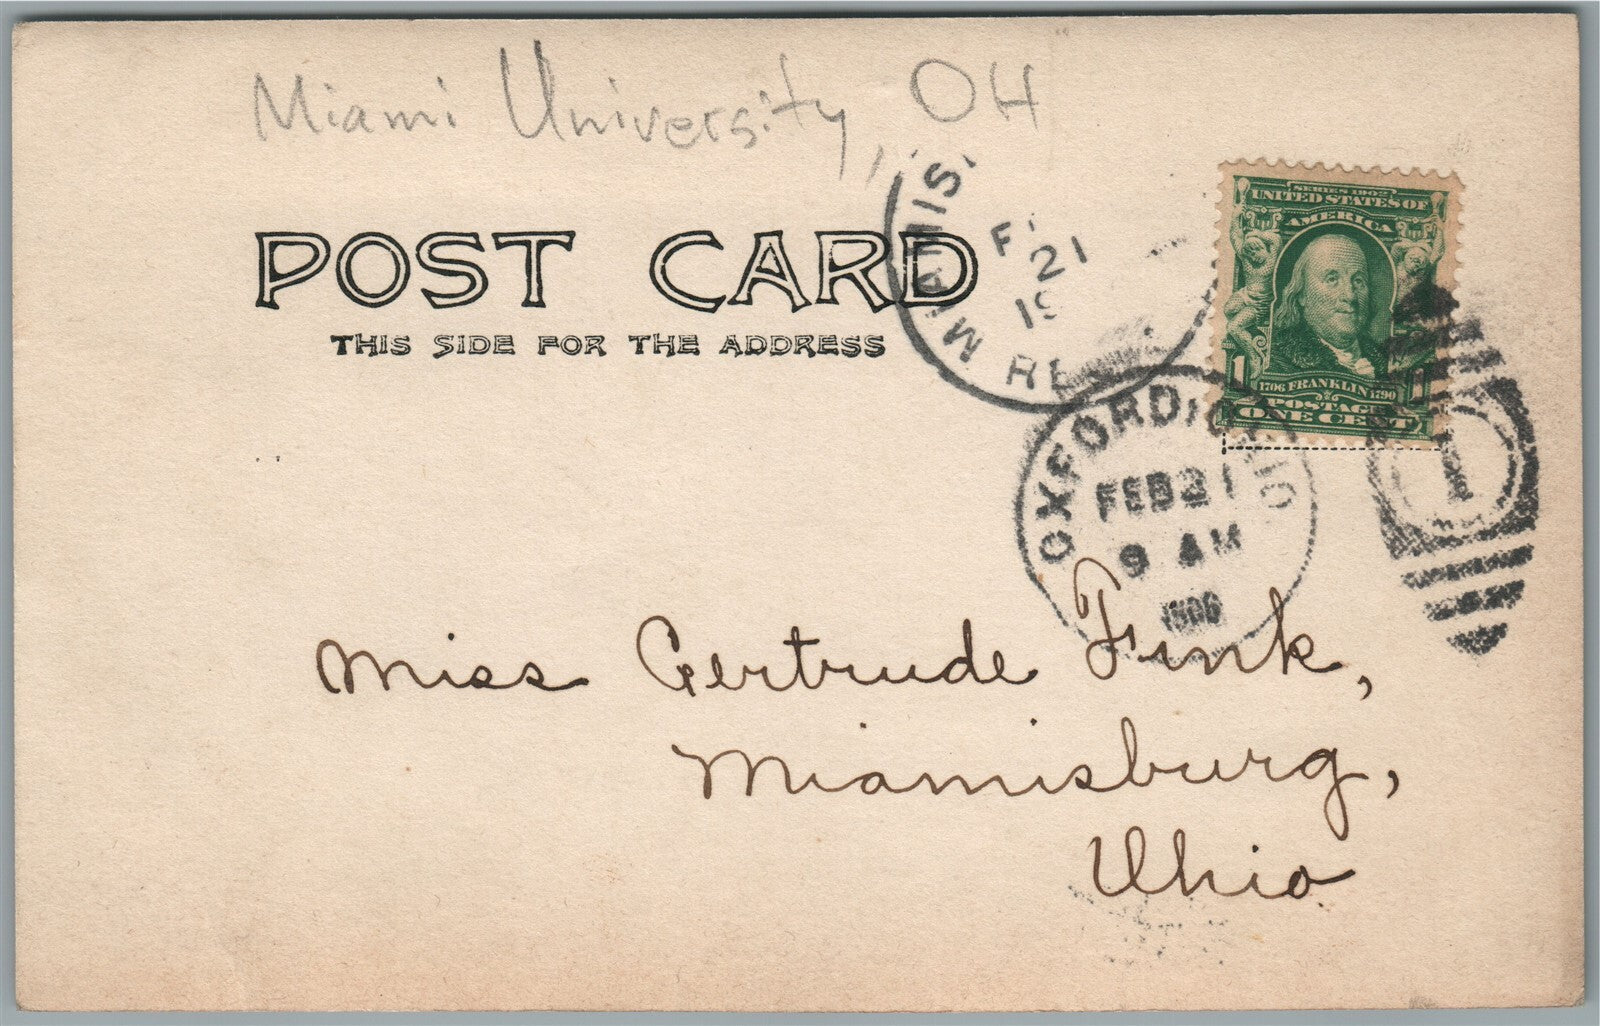 Miami University, OH
POST CARD
THIS SIDE FOR THE ADDRESS
MIAMIS
F
21
19
RE
SERIES 1902
UNITED STATES OF
AMERICA
1
1706 FRANKLIN 1790
1
POSTAGE
ONE CENT
OXFORD, OHIO
FEB 21
9 AM
1906
1
Miss Gertrude Fink,
Miamisburg,
Ohio.